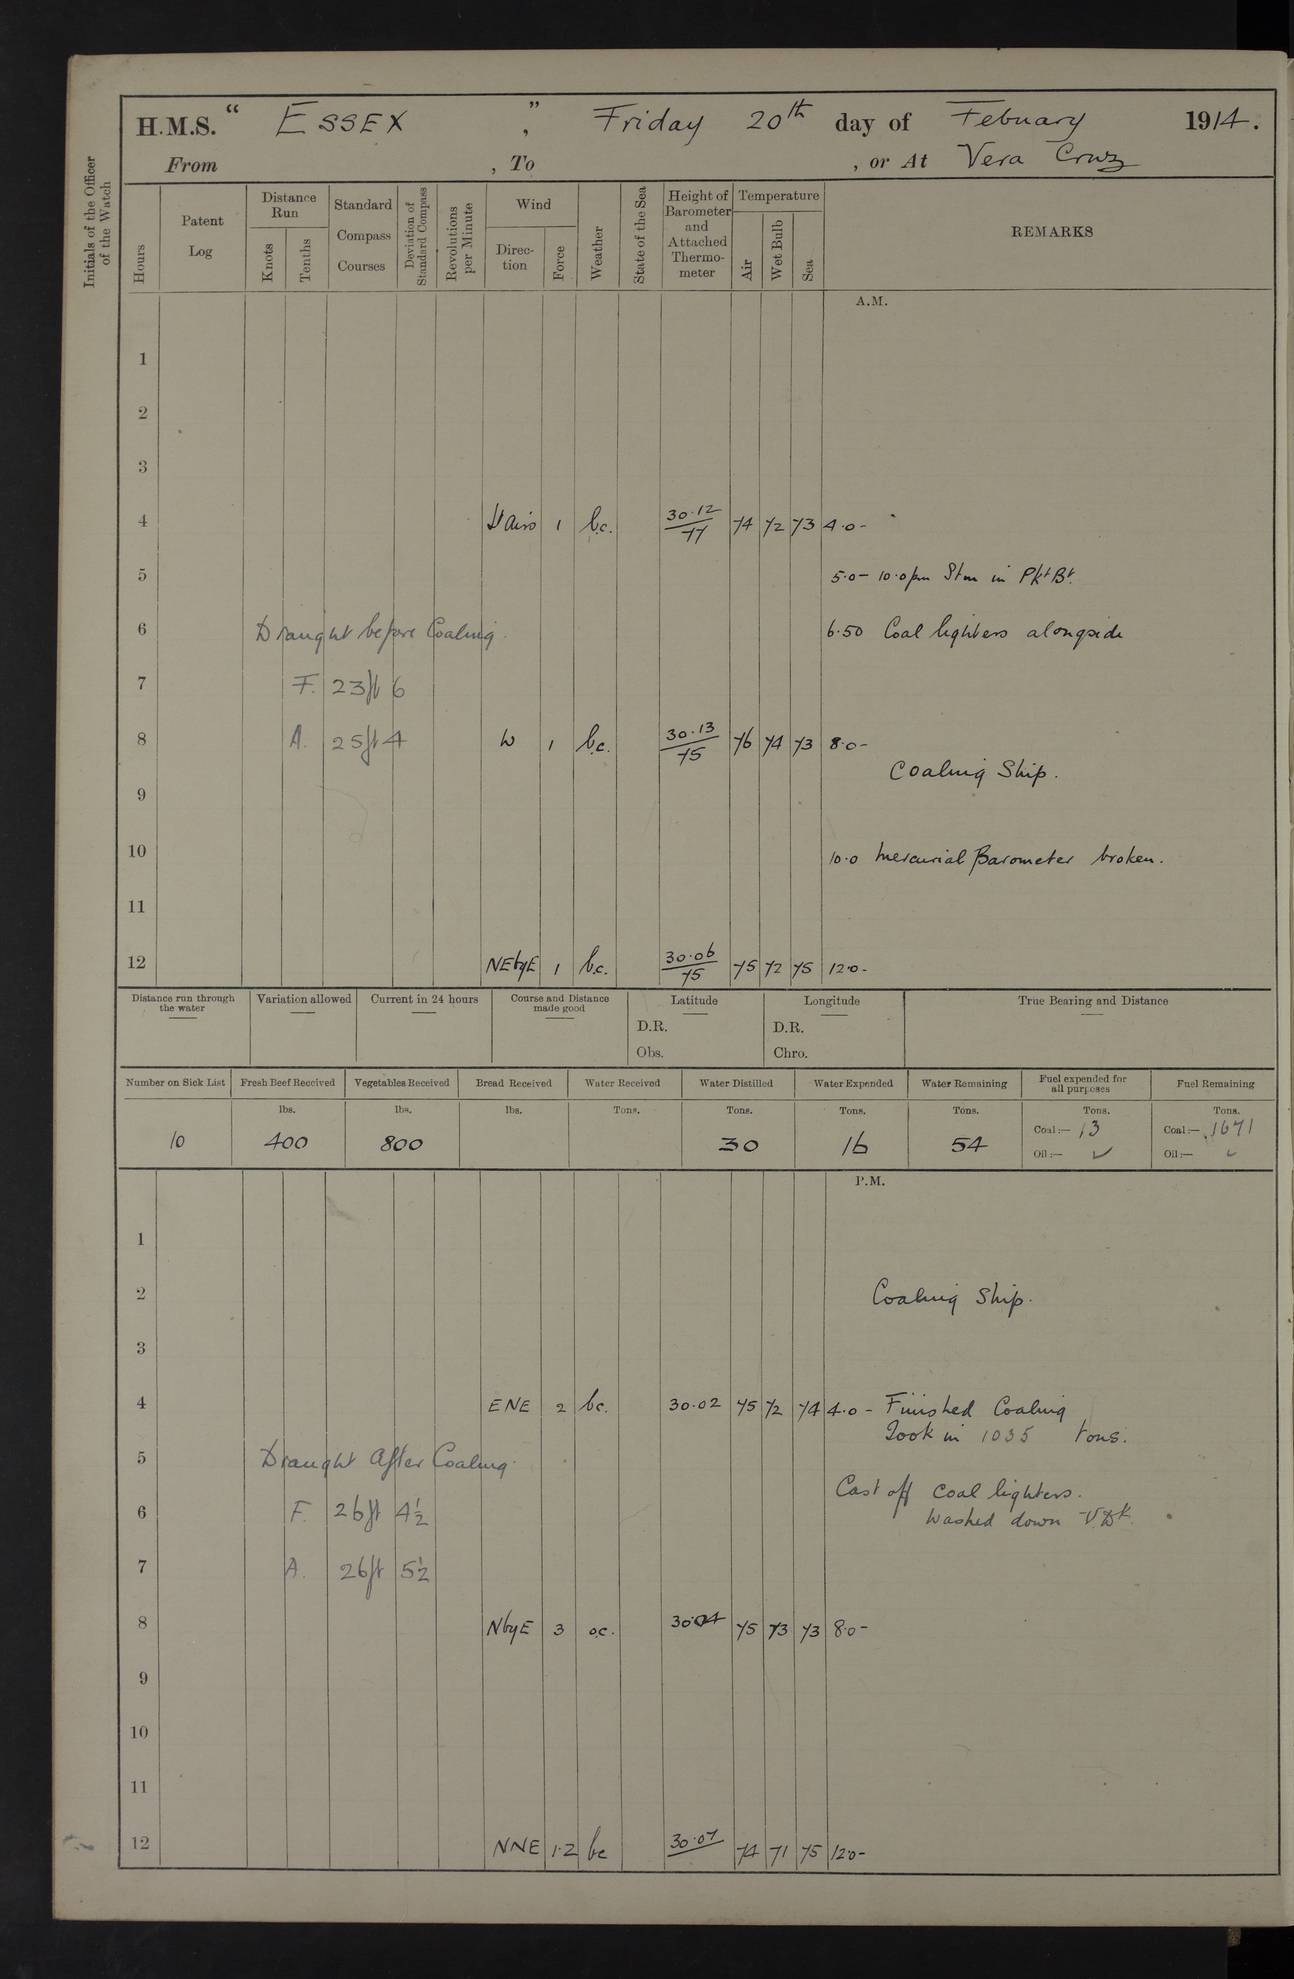 H.M.S. " ESSEX ", Friday 20th day of Febuary 1914.
From , To , or At Vera Cruz
Initials of the Officer of the Watch
Hours
Patent Log
Distance Run
Knots
Tenths
Standard Compass Courses
Deviation of Standard Compass
Revolutions per Minute
Wind
Direction
Force
Weather
State of the Sea
Height of Barometer and Attached Thermometer
Temperature
Air
Wet Bulb
Sea
REMARKS
A.M.
1
2
3
4 1 b.c. 30.12/77 74 72 73 4.0-
5 5.0- 10.0pm Stm in Pkt Bt.
6 Draught before Coaling. 6.50 Coal lighters alongside
7 F. 23ft 6
8 A. 25ft 4 W 1 b.c. 30.13/75 76 74 73 8.0-
Coaling Ship.
9
10 10.0 Mercurial Barometer broken.
11
12 NEbyE 1 b.c. 30.06/75 75 72 75 12.0-
Distance run through the water
Variation allowed
Current in 24 hours
Course and Distance made good
Latitude
D.R.
Obs.
Longitude
D.R.
Chro.
True Bearing and Distance
Number on Sick List
Fresh Beef Received
Vegetables Received
Bread Received
Water Received
Water Distilled
Water Expended
Water Remaining
Fuel expended for all purposes
Fuel Remaining
lbs. lbs. lbs. Tons. Tons. Tons. Tons. Tons. Tons.
10 400 800 30 16 54 Coal:— 13 Coal:— 1671
Oil:— ✓ Oil:— ✓
P.M.
1
2 Coaling Ship.
3
4 ENE 2 bc. 30.02 75 72 74 4.0- Finished Coaling
Took in 1035 tons.
5 Draught After Coaling.
Cast off coal lighters.
6 F. 26ft 4½ Washed down U.Dk.
7 A. 26ft 5½
8 NbyE 3 o.c. 30.04 75 73 73 8.0-
9
10
11
12 NNE 1.2 bc 30.07 74 71 75 12.0-